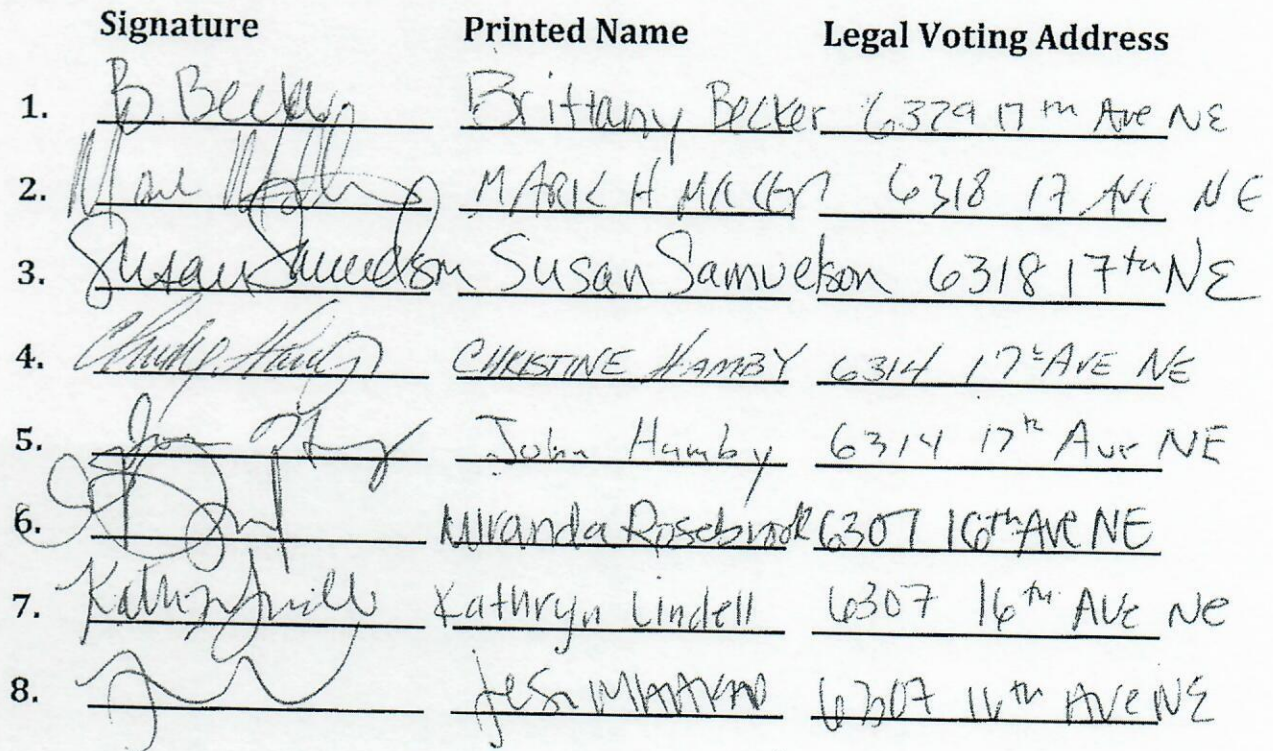 Signature Printed Name Legal Voting Address
1. B. Becker Brittany Becker 6329 17th Ave NE
2. MARK H 6318 17 AVE NE
3. Susan Samuelson Susan Samuelson 6318 17th NE
4. CHRISTINE HAMBY 6314 17th AVE NE
5. John Hamby 6314 17th Ave NE
6. Miranda Rosebrook 6307 16th AVE NE
7. Kathryn Lindell 6307 16th AVE NE
8. 6307 16th AVE NE